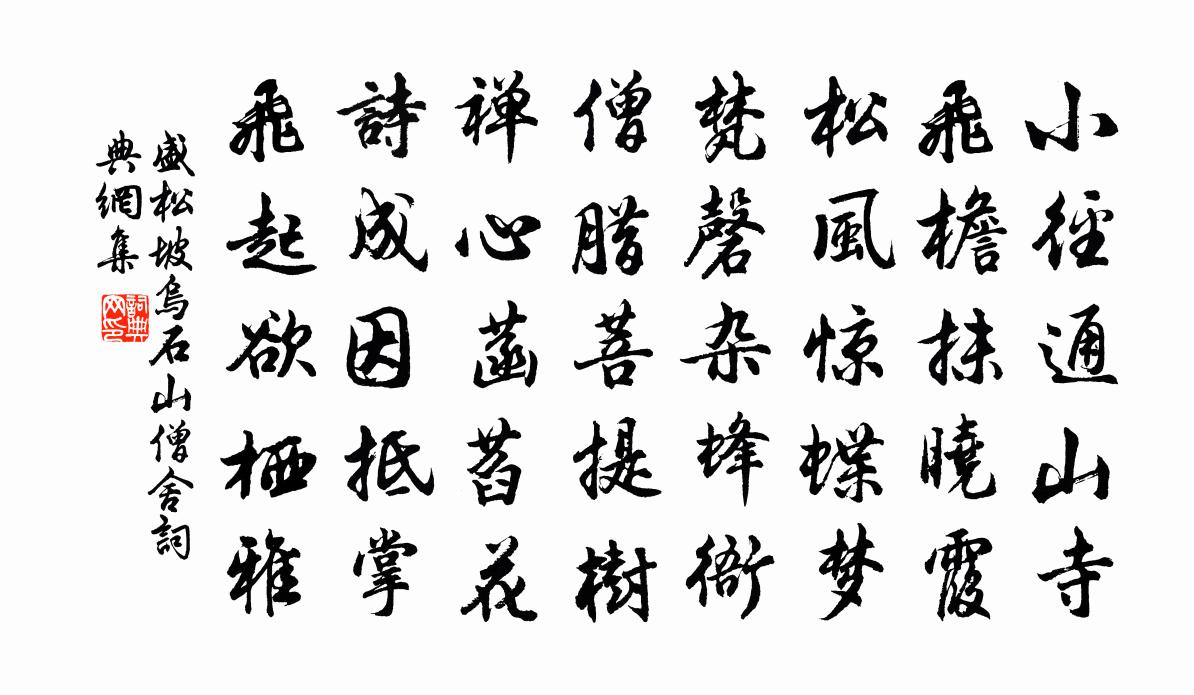 小徑通山寺
飛檐抹曉霞
松風惊蝶梦
梵磬杂蜂衙
僧腊菩提樹
禅心菡萏花
詩成因抵掌
飛起欲栖雅
盛松坡烏石山僧舍詞
典網集
詞典网印